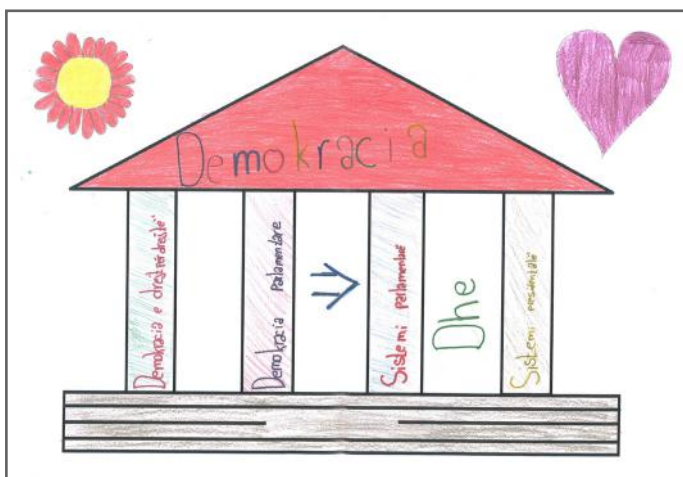 Demokracia
Demokracia e drejtpërdrejtë
Demokracia Parlamentare
Sistemi parlamentarë
Dhe
Sistemi presidentialë